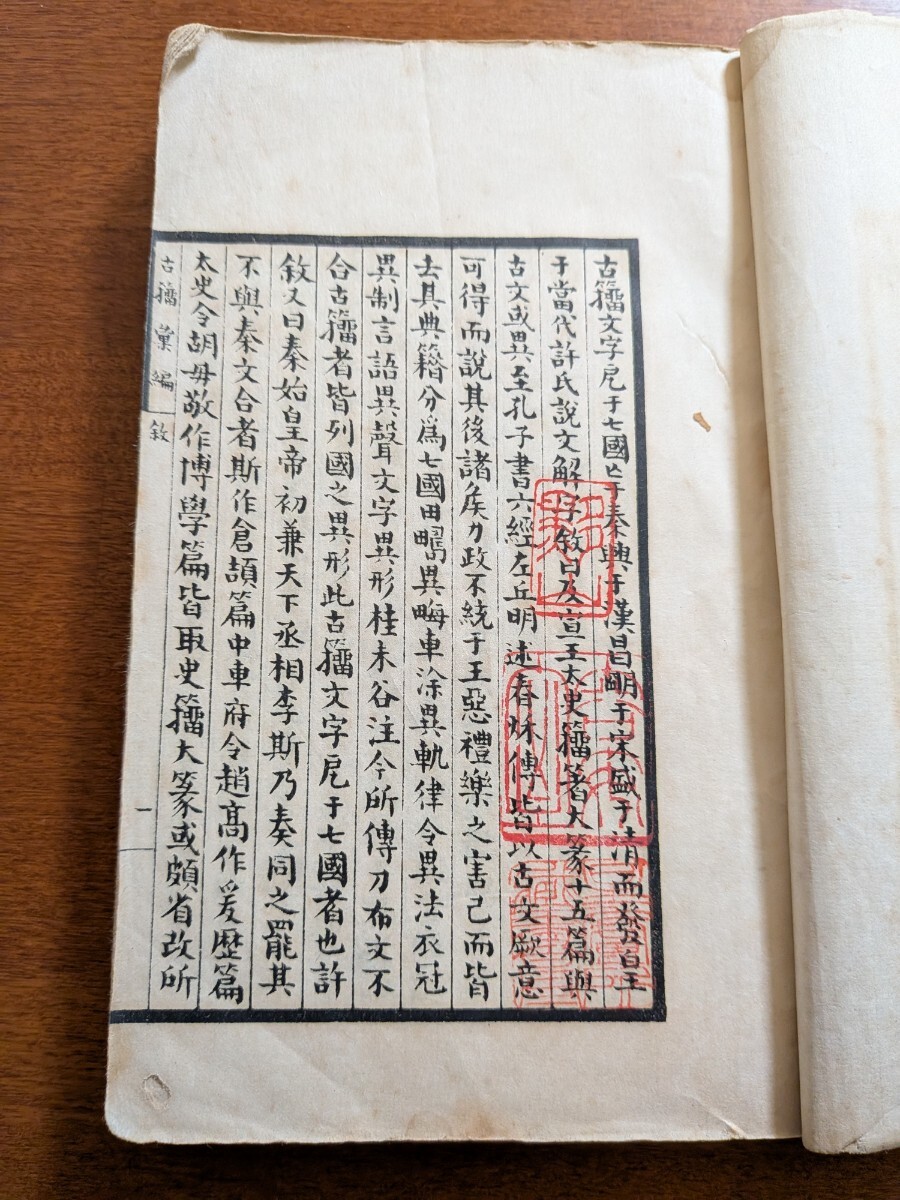 古籀文字厖于七國亡于秦興于漢昌明于宋盛于清而發皇
于當代許氏說文解字敘曰及宣王太史籀箸大篆十五篇與
古文或異至孔子書六經左丘明述春秌傳皆以古文厥意
可得而說其後諸矦力政不統于王惡禮樂之害己而皆
去其典籍分爲七國田疇異畮車涂異軌律令異法衣冠
異制言語異聲文字異形桂未谷注今所傳刀布文不
合古籀者皆列國之異形此古籀文字厖于七國者也許
敘又曰秦始皇帝初兼天下丞相李斯乃奏同之罷其
不與秦文合者斯作倉頡篇中車府令趙高作爰歷篇
太史令胡毋敬作博學篇皆取史籀大篆或頗省改所
古籀彙編
敘
一